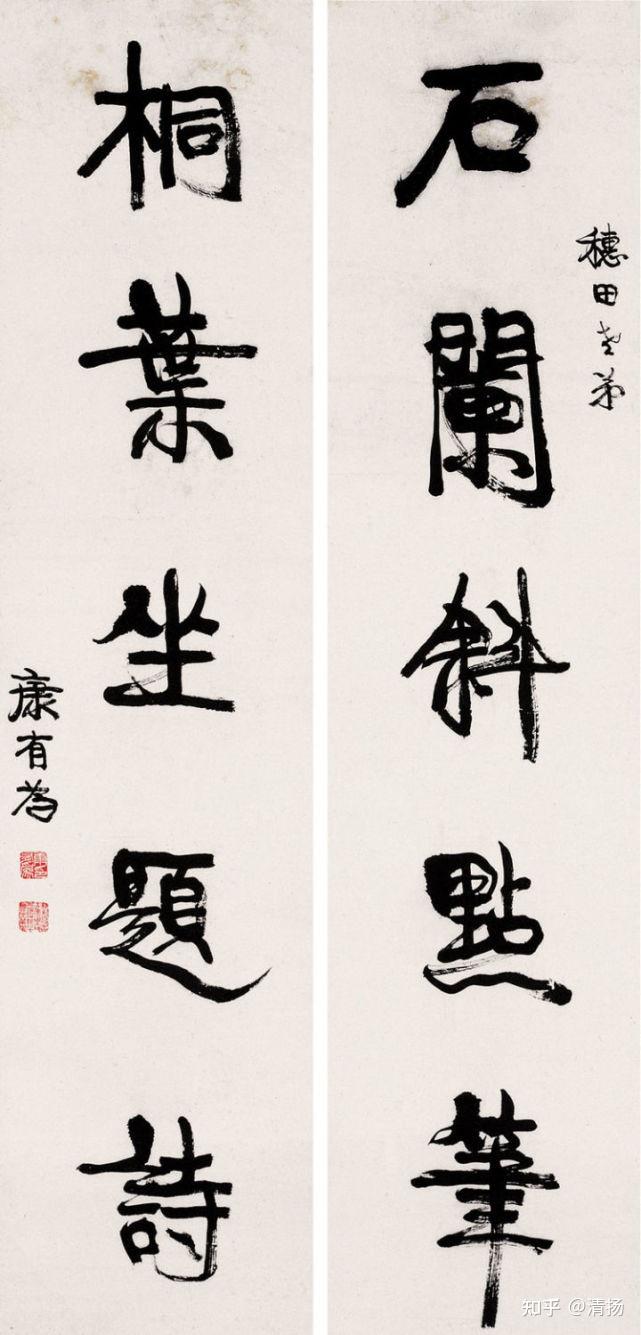 石闌斜點筆
穗田老弟
桐葉坐題詩
康有為
知乎 @清扬